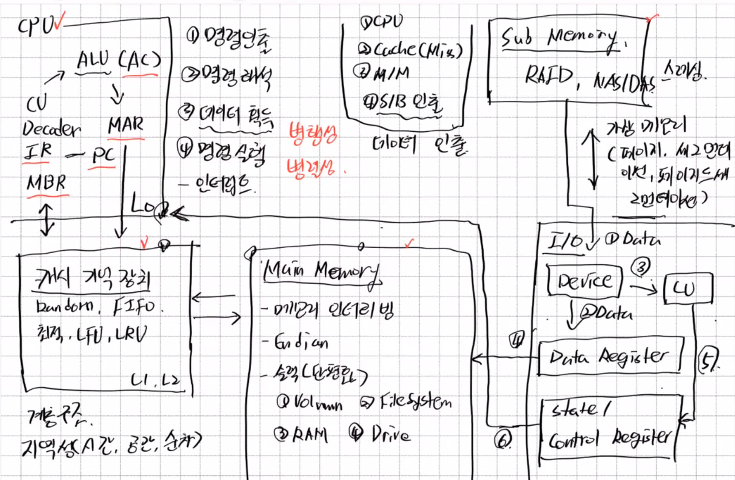 CPU
ALU (AC)
CU
Decoder
IR - PC
MAR
MBR
① 명령인출
② 명령해석
③ 데이터 획득
④ 명령실행
- 인터럽트
병행성
병렬성
①CPU
②Cache(Miss)
③M/M
④S/B 인출
데이터 인출
Sub Memory.
RAID, NAS/DAS 스토리지.
가상 메모리
(페이지, 세그먼테
이션, 페이지드세
그먼테이션)
캐시 기억 장치
Random, FIFO.
최적, LFU, LRU
L1, L2
계층구조.
지역성(시간, 공간, 순차)
Main Memory
- 메모리 인터리빙
- Endian
- 슬랙(단편화)
① Volumn ② FileSystem
③ RAM ④ Drive
I/O ① Data
Device ③ CU
②Data
④ Data Register ⑤
State/
⑥ Control Register